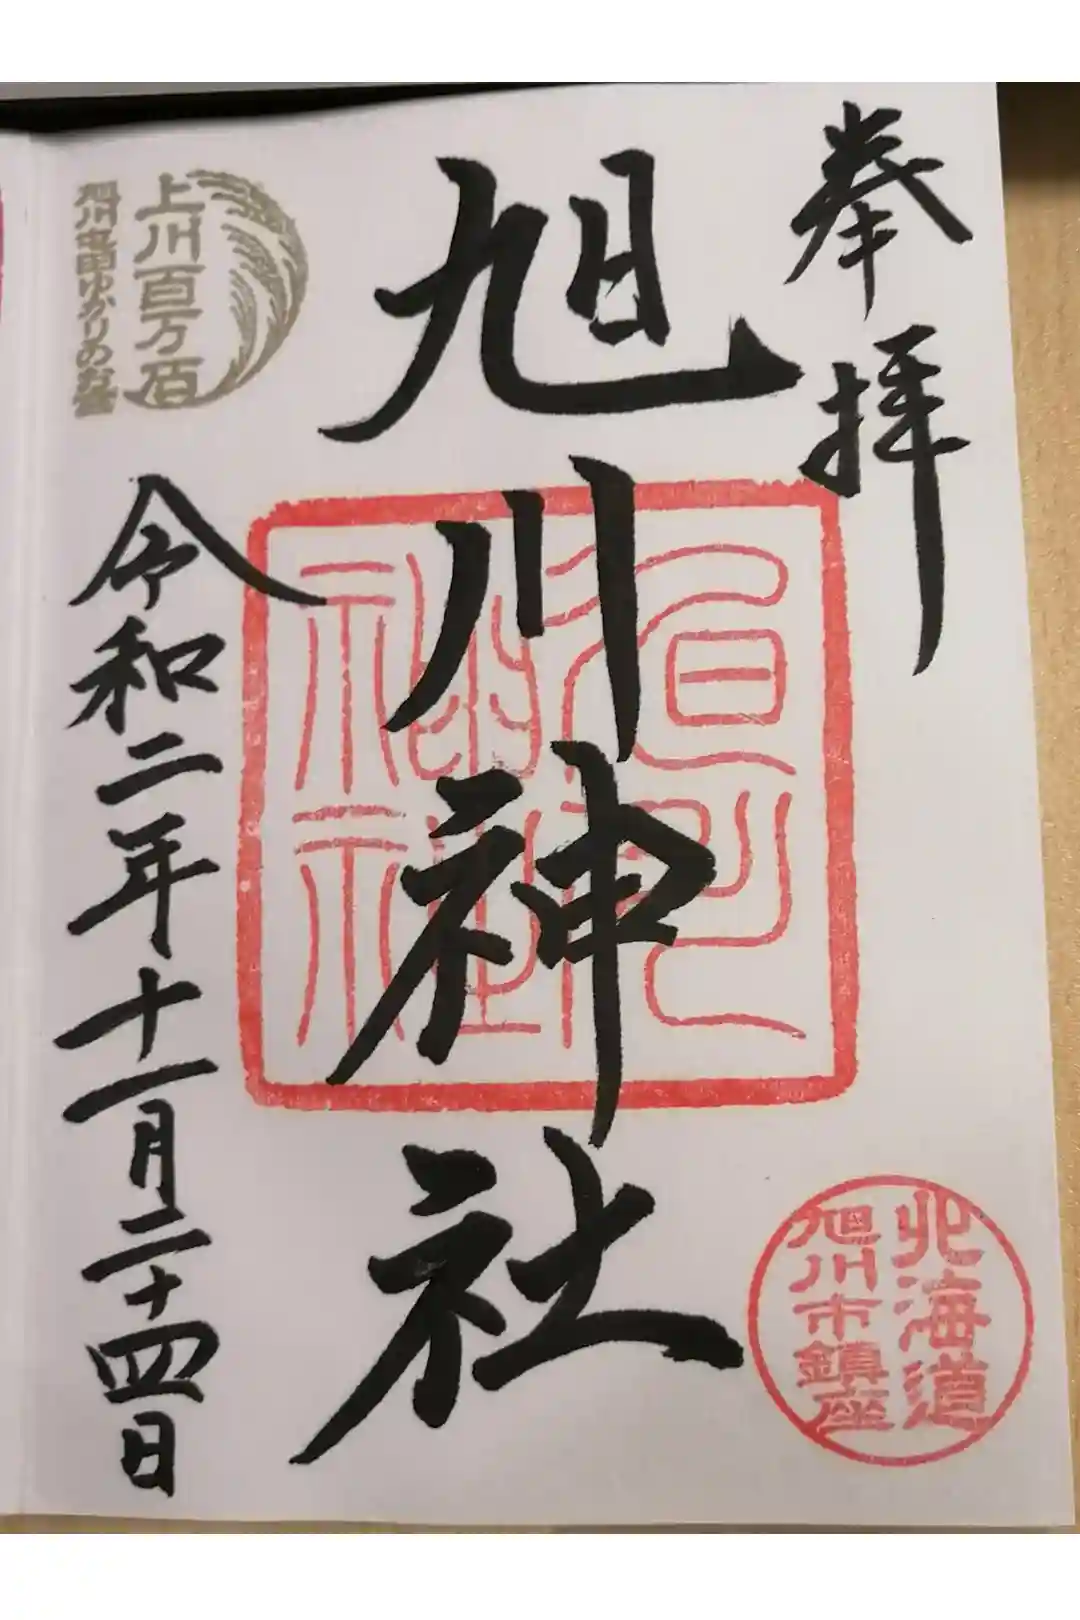 奉拝
旭川神社
旭川神社
令和二年十一月二十四日
上川百万石
旭川屯田ゆかりのお宮
北海道
旭川市鎮座